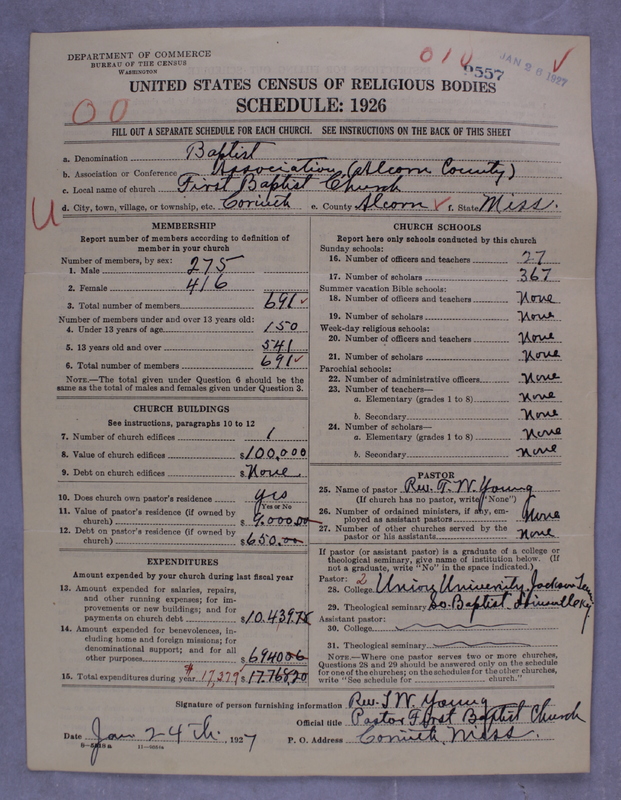 DEPARTMENT OF COMMERCE
BUREAU OF THE CENSUS
WASHINGTON
010 9557 JAN 26 1927 ✓
UNITED STATES CENSUS OF RELIGIOUS BODIES
SCHEDULE: 1926
00
FILL OUT A SEPARATE SCHEDULE FOR EACH CHURCH. SEE INSTRUCTIONS ON THE BACK OF THIS SHEET
a. Denomination Baptist
b. Association or Conference Association (Alcorn County)
c. Local name of church First Baptist Church
U
d. City, town, village, or township, etc. Corinth e. County Alcorn ✓ f. State Miss.
MEMBERSHIP
Report number of members according to definition of
member in your church
Number of members, by sex:
1. Male 275
2. Female 416
3. Total number of members 691 ✓
Number of members under and over 13 years old:
4. Under 13 years of age 150
5. 13 years old and over 541
6. Total number of members 691 ✓
NOTE.—The total given under Question 6 should be
same as the total of males and females given under Question 3.
CHURCH BUILDINGS
See instructions, paragraphs 10 to 12
7. Number of church edifices 1
8. Value of church edifices $100,000
9. Debt on church edifices $ None
10. Does church own pastor's residence yes
Yes or No
11. Value of pastor's residence (if owned by
church) $ 9,000.00
12. Debt on pastor's residence (if owned by
church) $ 650.00
EXPENDITURES
Amount expended by your church during last fiscal year
13. Amount expended for salaries, repairs,
and other running expenses; for im-
provements or new buildings; and for
payments on church debt $10.439.78
14. Amount expended for benevolences, in-
cluding home and foreign missions; for
denominational support; and for all
other purposes $ 6940
15. Total expenditures during year $ 17,379 $
CHURCH SCHOOLS
Report here only schools conducted by this church
Sunday schools:
16. Number of officers and teachers 27
17. Number of scholars 367
Summer vacation Bible schools:
18. Number of officers and teachers None
19. Number of scholars None
Week-day religious schools:
20. Number of officers and teachers None
21. Number of scholars None
Parochial schools:
22. Number of administrative officers None
23. Number of teachers—
a. Elementary (grades 1 to 8) None
b. Secondary None
24. Number of scholars—
a. Elementary (grades 1 to 8) None
b. Secondary None
PASTOR
25. Name of pastor Rev. T. W. Young
(If church has no pastor, write "None")
26. Number of ordained ministers, if any, em-
ployed as assistant pastors None
27. Number of other churches served by the
pastor or his assistants None
If pastor (or assistant pastor) is a graduate of a college or
theological seminary, give name of institution below. (If
not a graduate, write "No" in the space indicated.)
Pastor: 2
28. College Union University, Jackson Tenn
29. Theological seminary So. Baptist Louisville Ky.
Assistant pastor:
30. College
31. Theological seminary
NOTE.—Where one pastor serves two or more churches,
Questions 28 and 29 should be answered only on the schedule
for one of the churches; on the schedules for the other churches,
write "See schedule for church."
Signature of person furnishing information Rev. T. W. Young
Official title Pastor First Baptist Church
Date Jan 24 Th, 1927 P. O. Address Corinth, Miss.